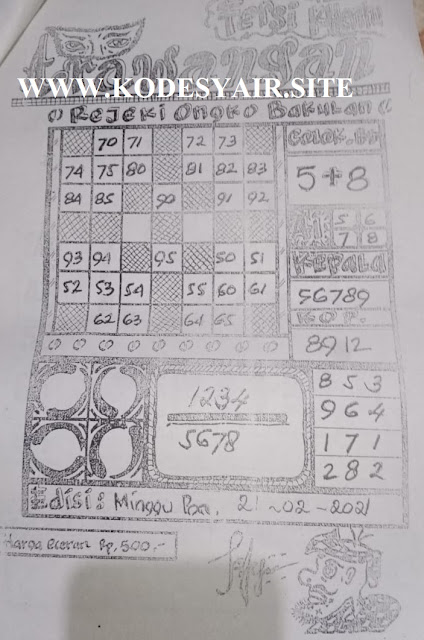 Trawangan
WWW.KODESYAIR.SITE
Rejeki Ongko Bakulan
70 71 72 73
74 75 80 81 82 83
84 85 90 91 92
93 94 95 50 51
52 53 54 55 60 61
62 63 64 65
5+8
AI
5 6
7 8
KEPALA
56789
KOP.
8912
1234
5678
853
964
171
282
Edisi: Minggu Pon, 21-02-2021
Harga Eceran Rp. 500.-